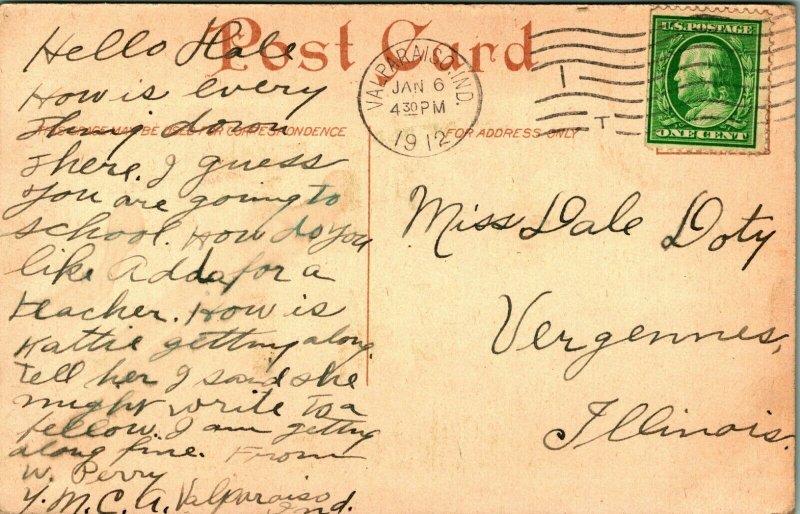 Post Card
THIS SPACE MAY BE USED FOR CORRESPONDENCE
FOR ADDRESS ONLY
VALPARAISO, IND.
JAN 6
4 30 PM
1912
U.S. POSTAGE
ONE CENT
Hello Dale
How is every
thing down
there. I guess
you are going to
school. How do you
like Adda for a
teacher. How is
Hattie getting along
Tell her I said she
might write to a
fellow. I am getting
along fine. From
W. Perry
Y.M.C.A. Valparaiso
Ind.
Miss Dale Doty
Vergennes,
Illinois.